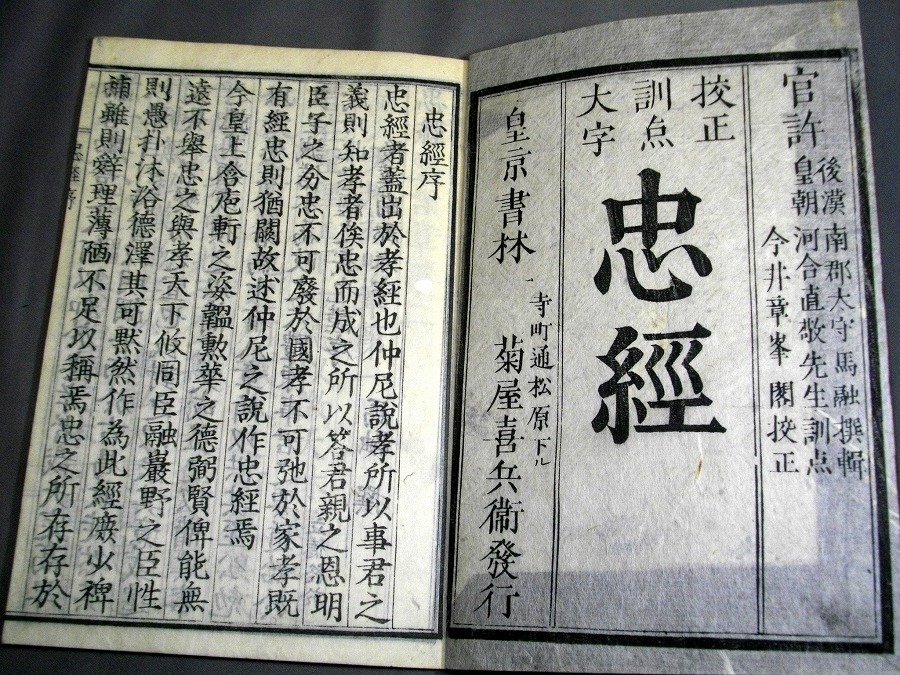 官許
後漢 南郡太守馬融撰輯
皇朝 河合直敬先生訓点
今井章峯閣挍正
挍正
訓点
大字
忠經
皇京書林
寺町通松原下ル
菊屋喜兵衞發行
忠經序
忠經者蓋出於孝經也仲尼說孝所以事君之
義則知孝者俟忠而成之所以答君親之恩明
臣子之分忠不可廢於國孝不可弛於家孝既
有經忠則猶闕故述仲尼之說作忠經焉
今皇上含庖軒之姿韞勲華之德弼賢俾能無
遠不舉忠之與孝天下攸同臣融巖野之臣性
則愚朴沐浴德澤其可默然作為此經庶少裨
補雖則辭理薄陋不足以稱焉忠之所存存於
忠經序